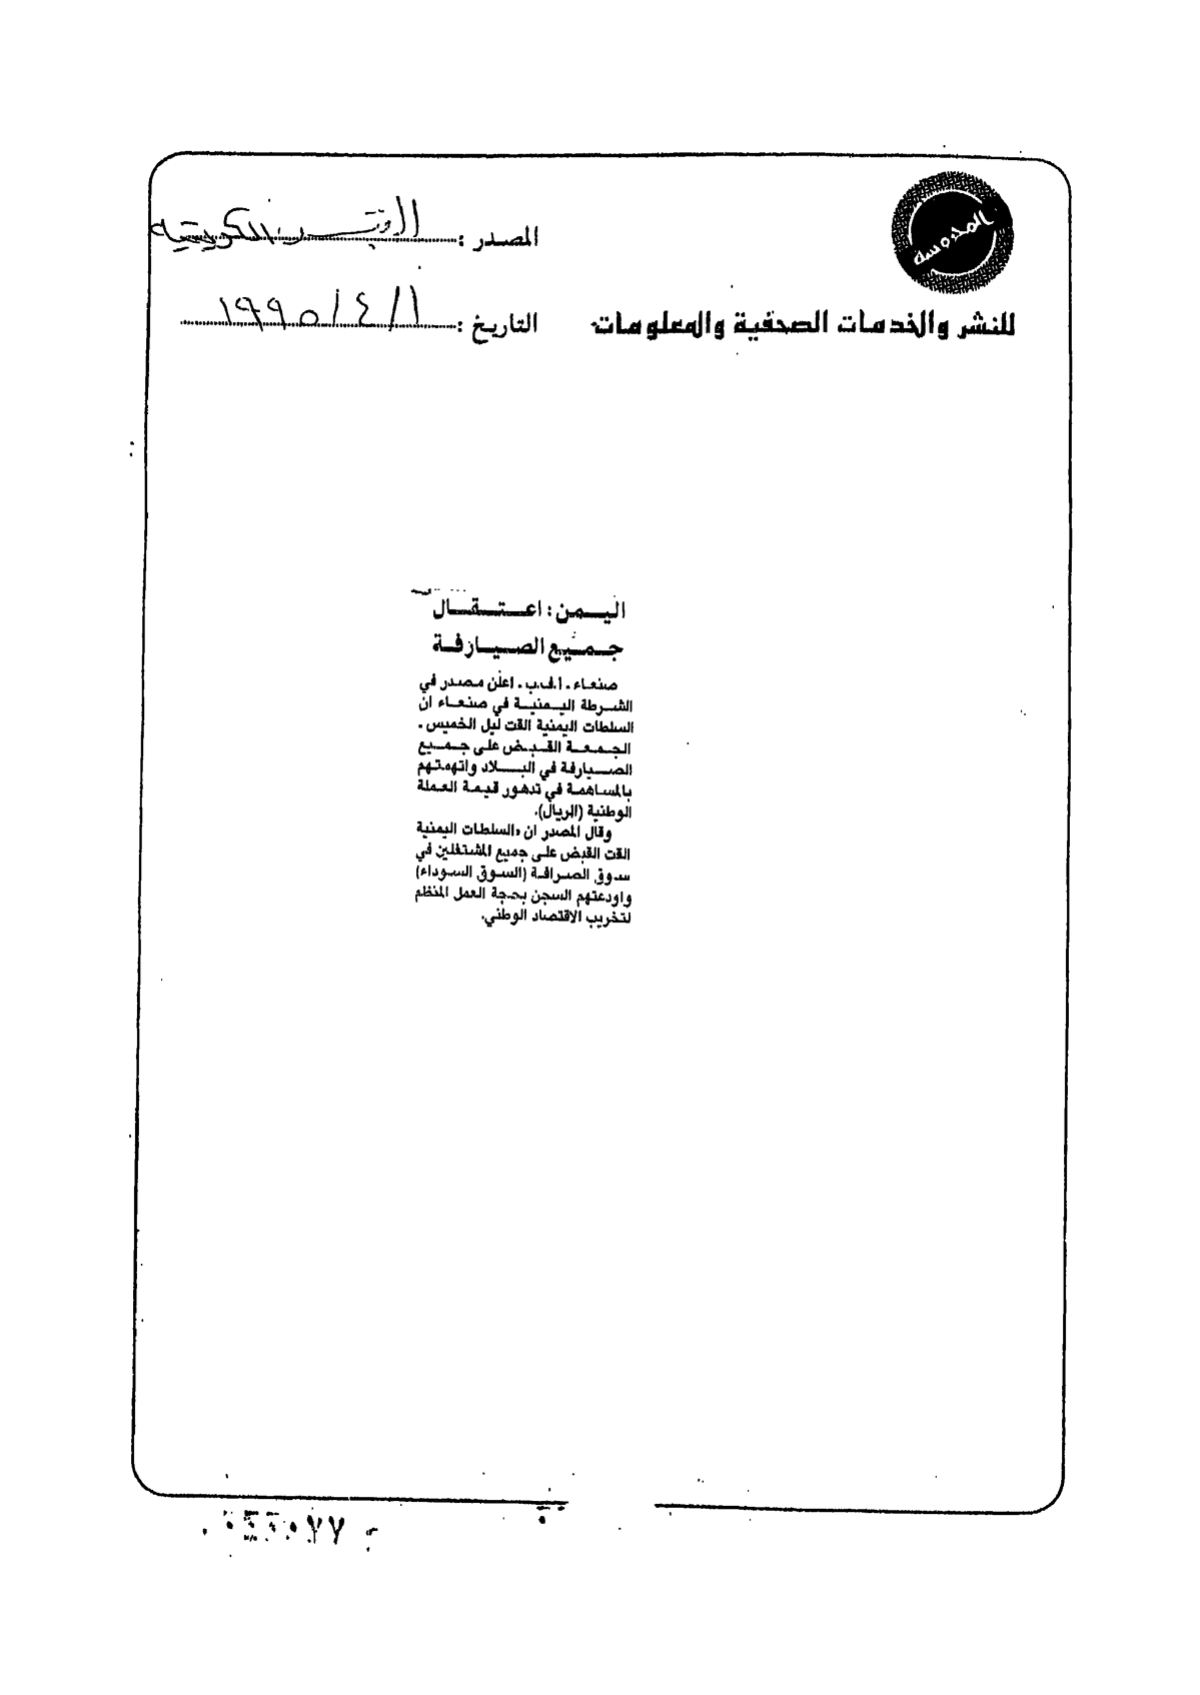 المحروسة
للنشر والخدمات الصحفية والمعلومات
المصدر : القبس الكويتية
التاريخ : ١ / ٤ / ١٩٩٥
اليمن : اعتقال
جميع الصيارفة
صنعاء . ا.ف.ب . اعلن مصدر في
الشرطة اليمنية في صنعاء ان
السلطات اليمنية القت ليل الخميس .
الجمعة القبض على جميع
الصيارفة في البلاد واتهمتهم
بالمساهمة في تدهور قيمة العملة
الوطنية (الريال).
وقال المصدر ان «السلطات اليمنية
القت القبض على جميع المشتغلين في
سوق الصرافة (السوق السوداء)
واودعتهم السجن بحجة العمل المنظم
لتخريب الاقتصاد الوطني.